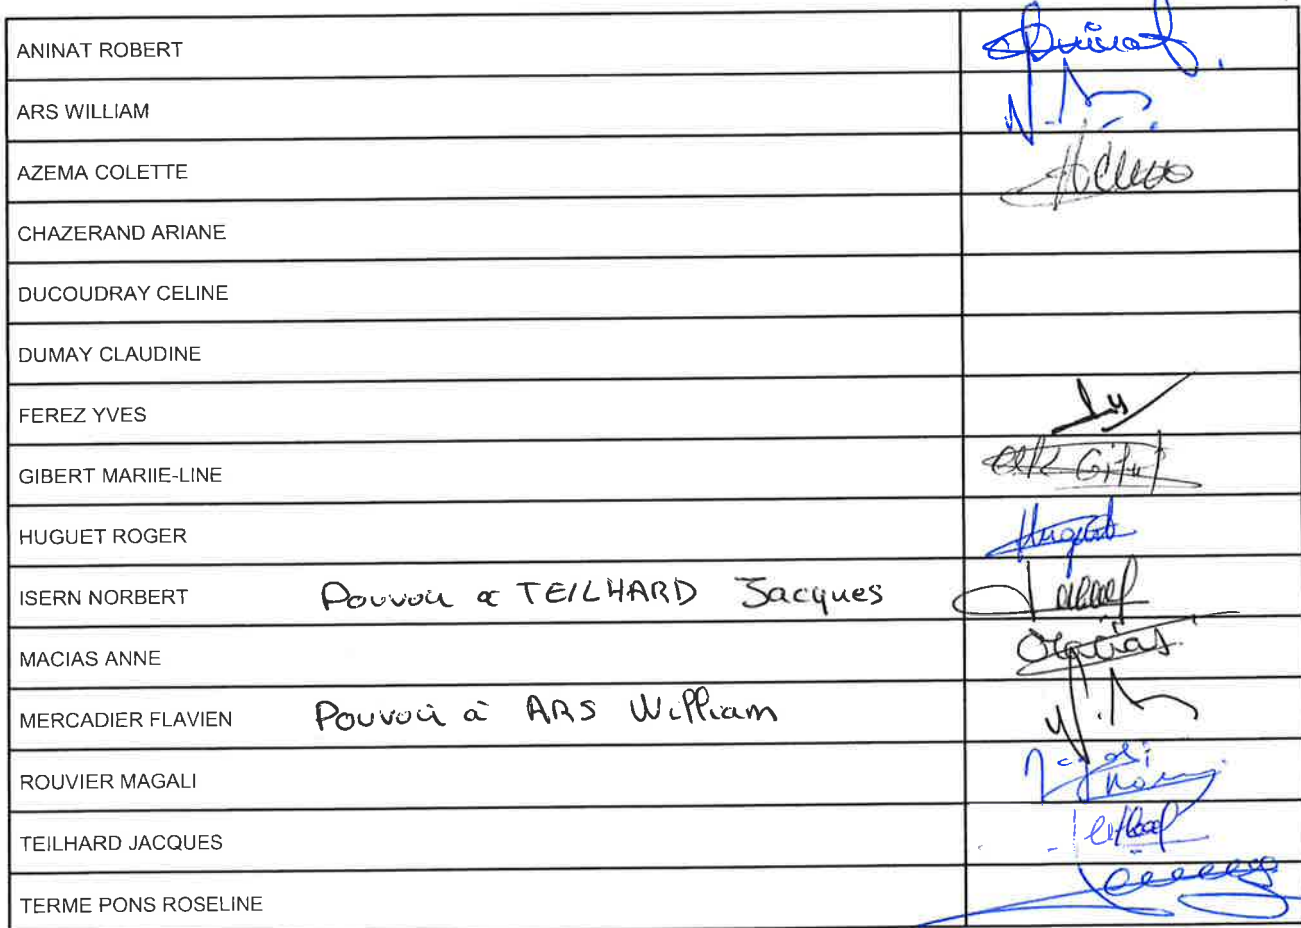 ANINAT ROBERT
ARS WILLIAM
AZEMA COLETTE
CHAZERAND ARIANE
DUCOUDRAY CELINE
DUMAY CLAUDINE
FEREZ YVES
GIBERT MARIIE-LINE
HUGUET ROGER Huguet
ISERN NORBERT Pouvoir à TEILHARD Jacques
MACIAS ANNE Macias
MERCADIER FLAVIEN Pouvoir à ARS William
ROUVIER MAGALI
TEILHARD JACQUES
TERME PONS ROSELINE